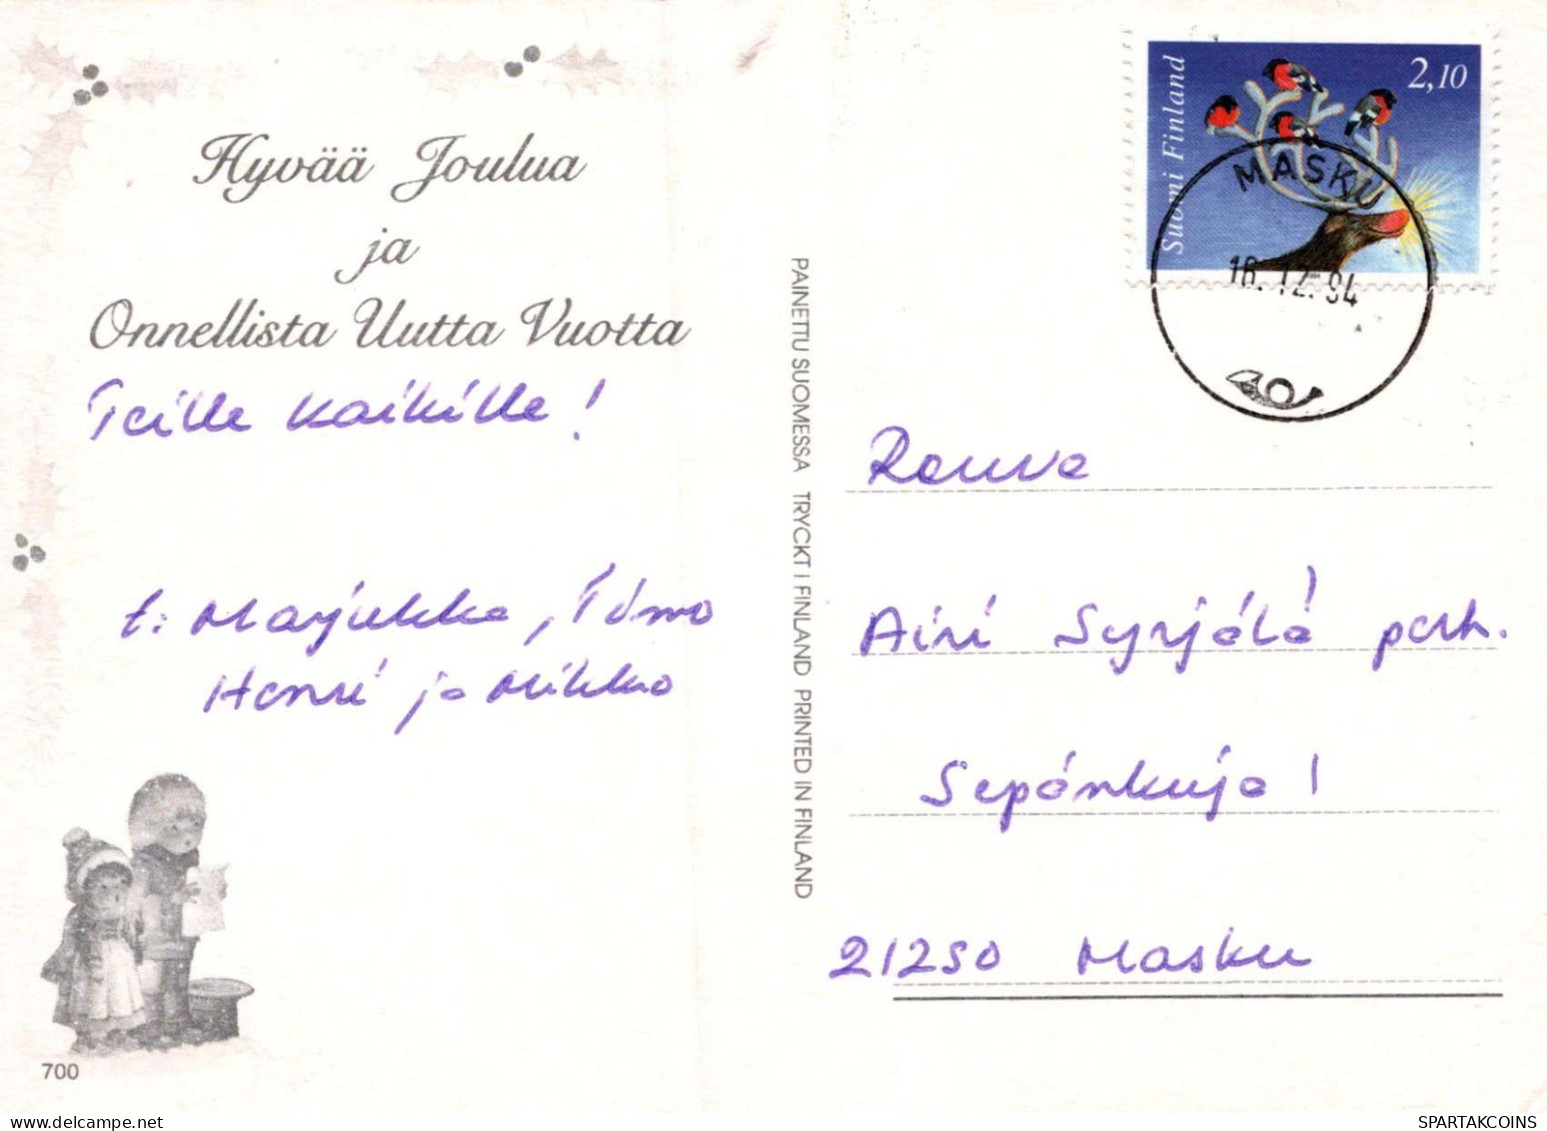 Hyvää Joulua
ja
Onnellista Uutta Vuotta
Teille kaikille!
t: Marjukka, Timo
Henri ja Mikko
700
PAINETTU SUOMESSA TRYCKT I FINLAND PRINTED IN FINLAND
Suomi Finland
2,10
MASKU
16.12.94
Rouva
Airi Syrjälä perh.
Sepänkuja 1
21250 Masku
SPARTAKCOINS